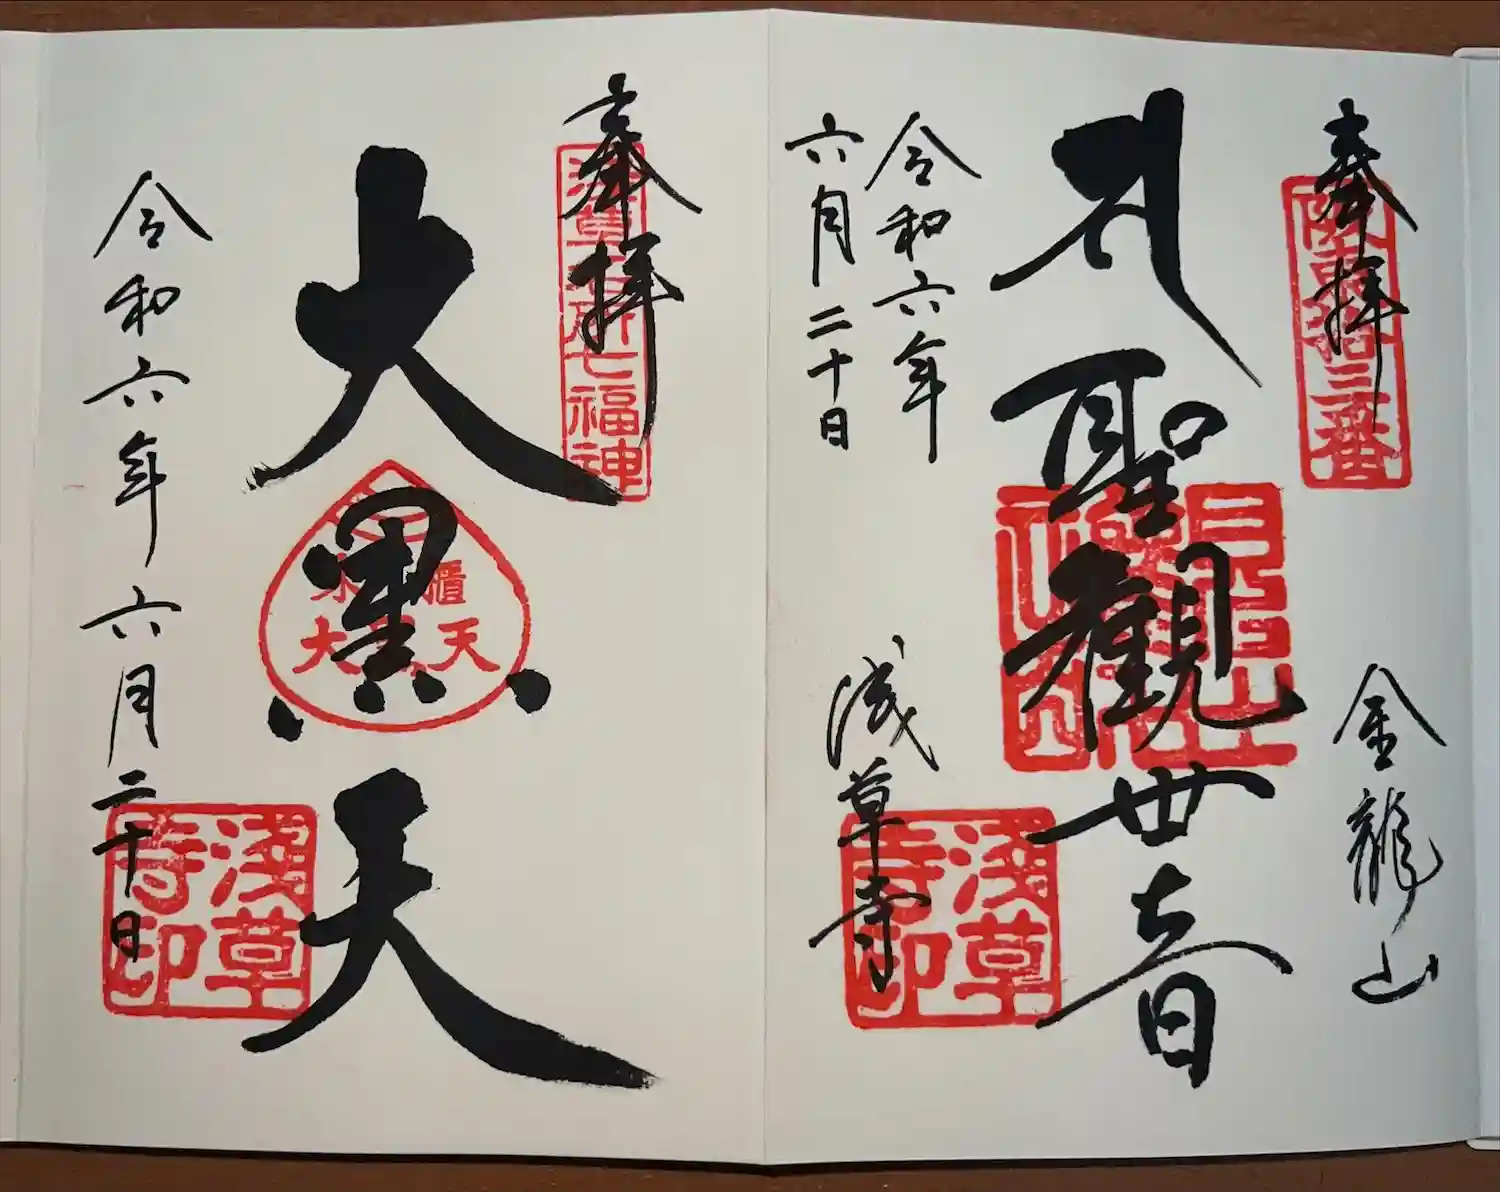 奉拝
坂東拾三番
聖観世音
金龍山
令和六年
六月二十日
浅草寺
浅草寺印
奉拝
浅草名所七福神
大黒天
米櫃
大黒天
令和六年六月二十日
浅草寺印